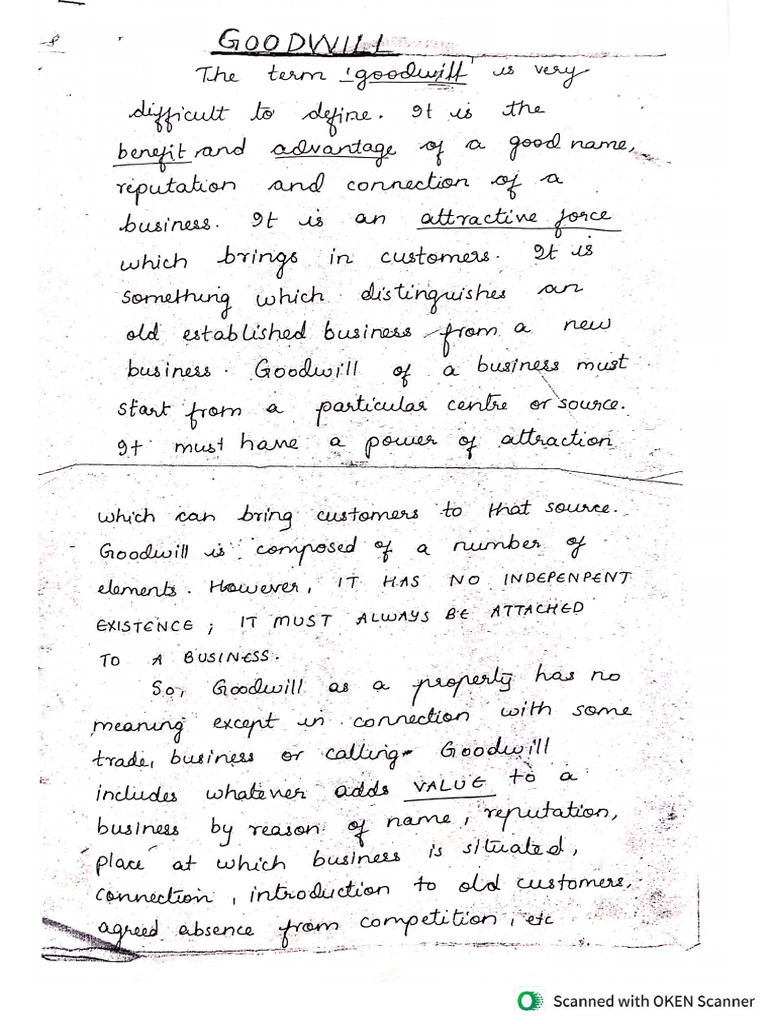 GOODWILL
The term 'goodwill' is very
difficult to define. It is the
benefit and advantage of a good name,
reputation and connection of a
business. It is an attractive force
which brings in customers. It is
something which distinguishes an
old established business from a new
business. Goodwill of a business must
start from a particular centre or source.
It must have a power of attraction
which can bring customers to that source.
Goodwill is composed of a number of
elements. However, IT HAS NO INDEPENPENT
EXISTENCE; IT MUST ALWAYS BE ATTACHED
TO A BUSINESS.
So, Goodwill as a property has no
meaning except in connection with some
trade, business or calling. Goodwill
includes whatever adds VALUE to a
business by reason of name, reputation,
'place' at which business is situated,
connection, introduction to old customers,
agreed absence from competition, etc
Scanned with OKEN Scanner